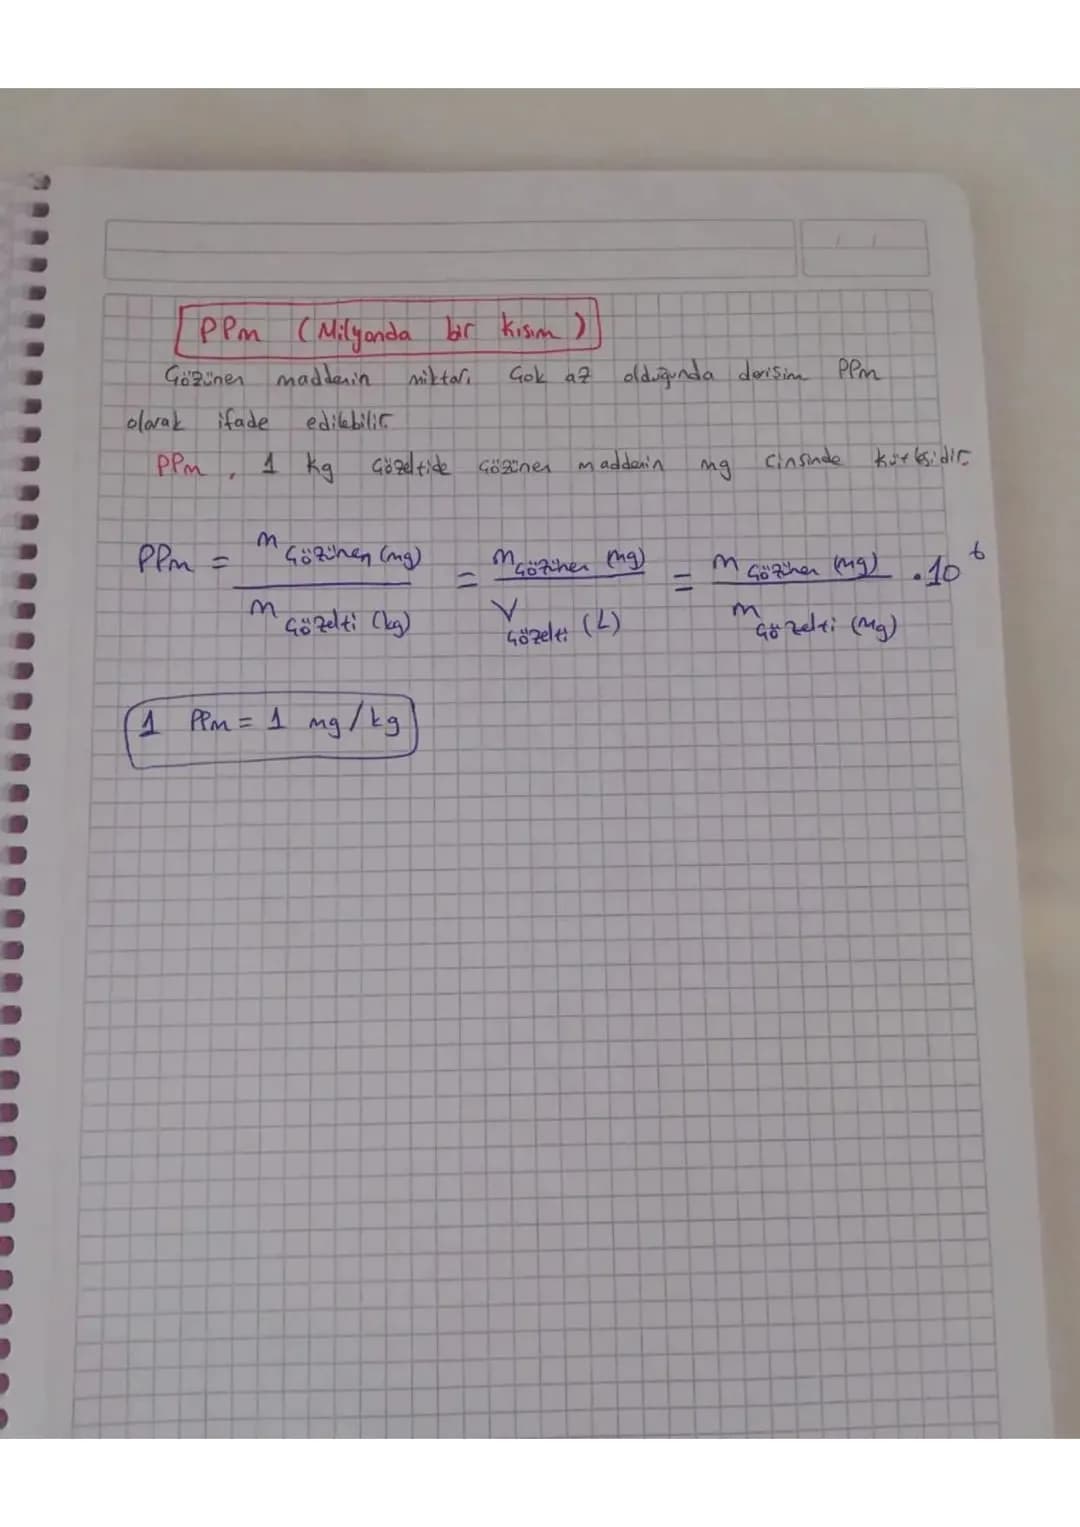 PPm (Milyonda bir kısım)
Çözünen maddenin miktarı çok az olduğunda derişim PPm
olarak ifade edilebilir.
PPm, 1 kg çözeltide çözünen maddenin mg cinsinde kütlesidir.
PPm = m çözünen (mg) / m çözelti (kg) = m çözünen (mg) / V çözelti (L) = m çözünen (mg) / m çözelti (mg) . 10⁶
1 PPm = 1 mg/kg